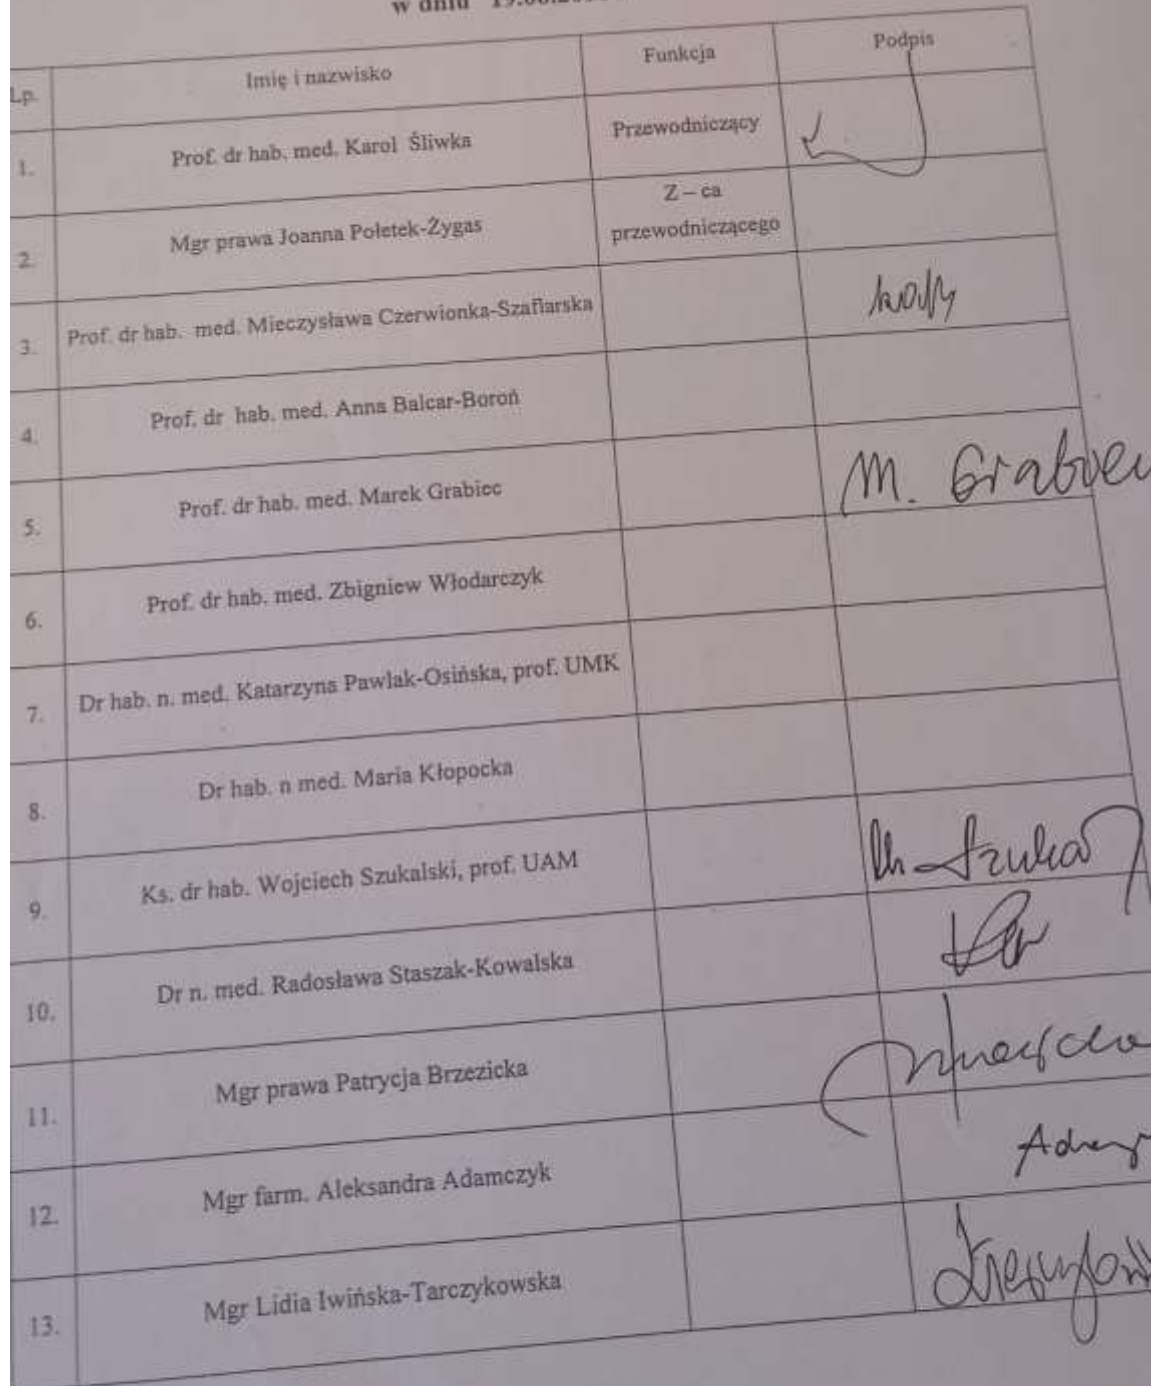 w dniu
Lp. Imię i nazwisko Funkcja Podpis
1. Prof. dr hab. med. Karol Śliwka Przewodniczący
2. Mgr prawa Joanna Połetek-Żygas Z – ca
przewodniczącego
3. Prof. dr hab. med. Mieczysława Czerwionka-Szaflarska
4. Prof. dr hab. med. Anna Balcar-Boroń
5. Prof. dr hab. med. Marek Grabiec M. Grabiec
6. Prof. dr hab. med. Zbigniew Włodarczyk
7. Dr hab. n. med. Katarzyna Pawlak-Osińska, prof. UMK
8. Dr hab. n med. Maria Kłopocka
9. Ks. dr hab. Wojciech Szukalski, prof. UAM
10. Dr n. med. Radosława Staszak-Kowalska
11. Mgr prawa Patrycja Brzezicka
12. Mgr farm. Aleksandra Adamczyk
13. Mgr Lidia Iwińska-Tarczykowska